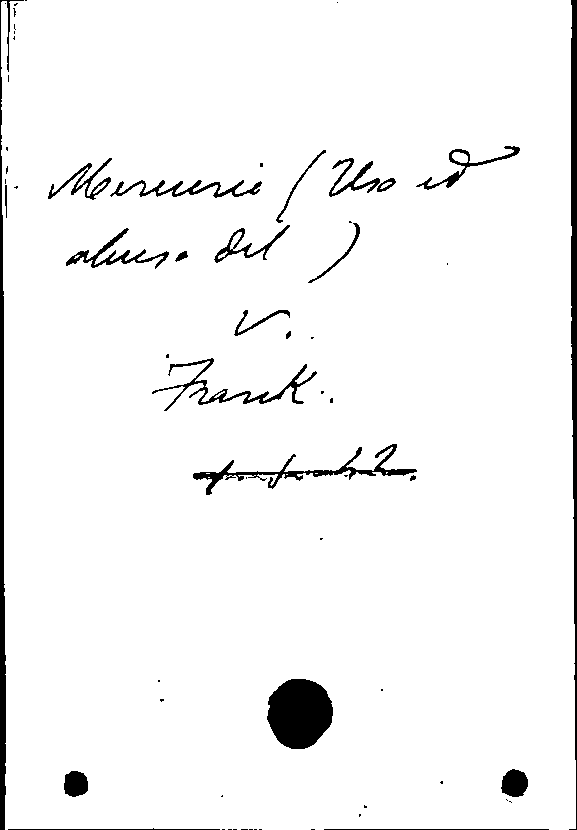 Mercurio (Uso ed
abuso del )
V.
Frank.